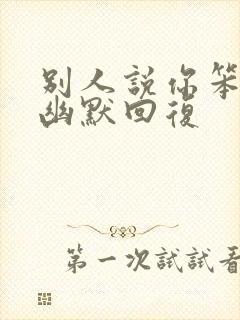 别人説你笨
幽默回復
第一次試試看